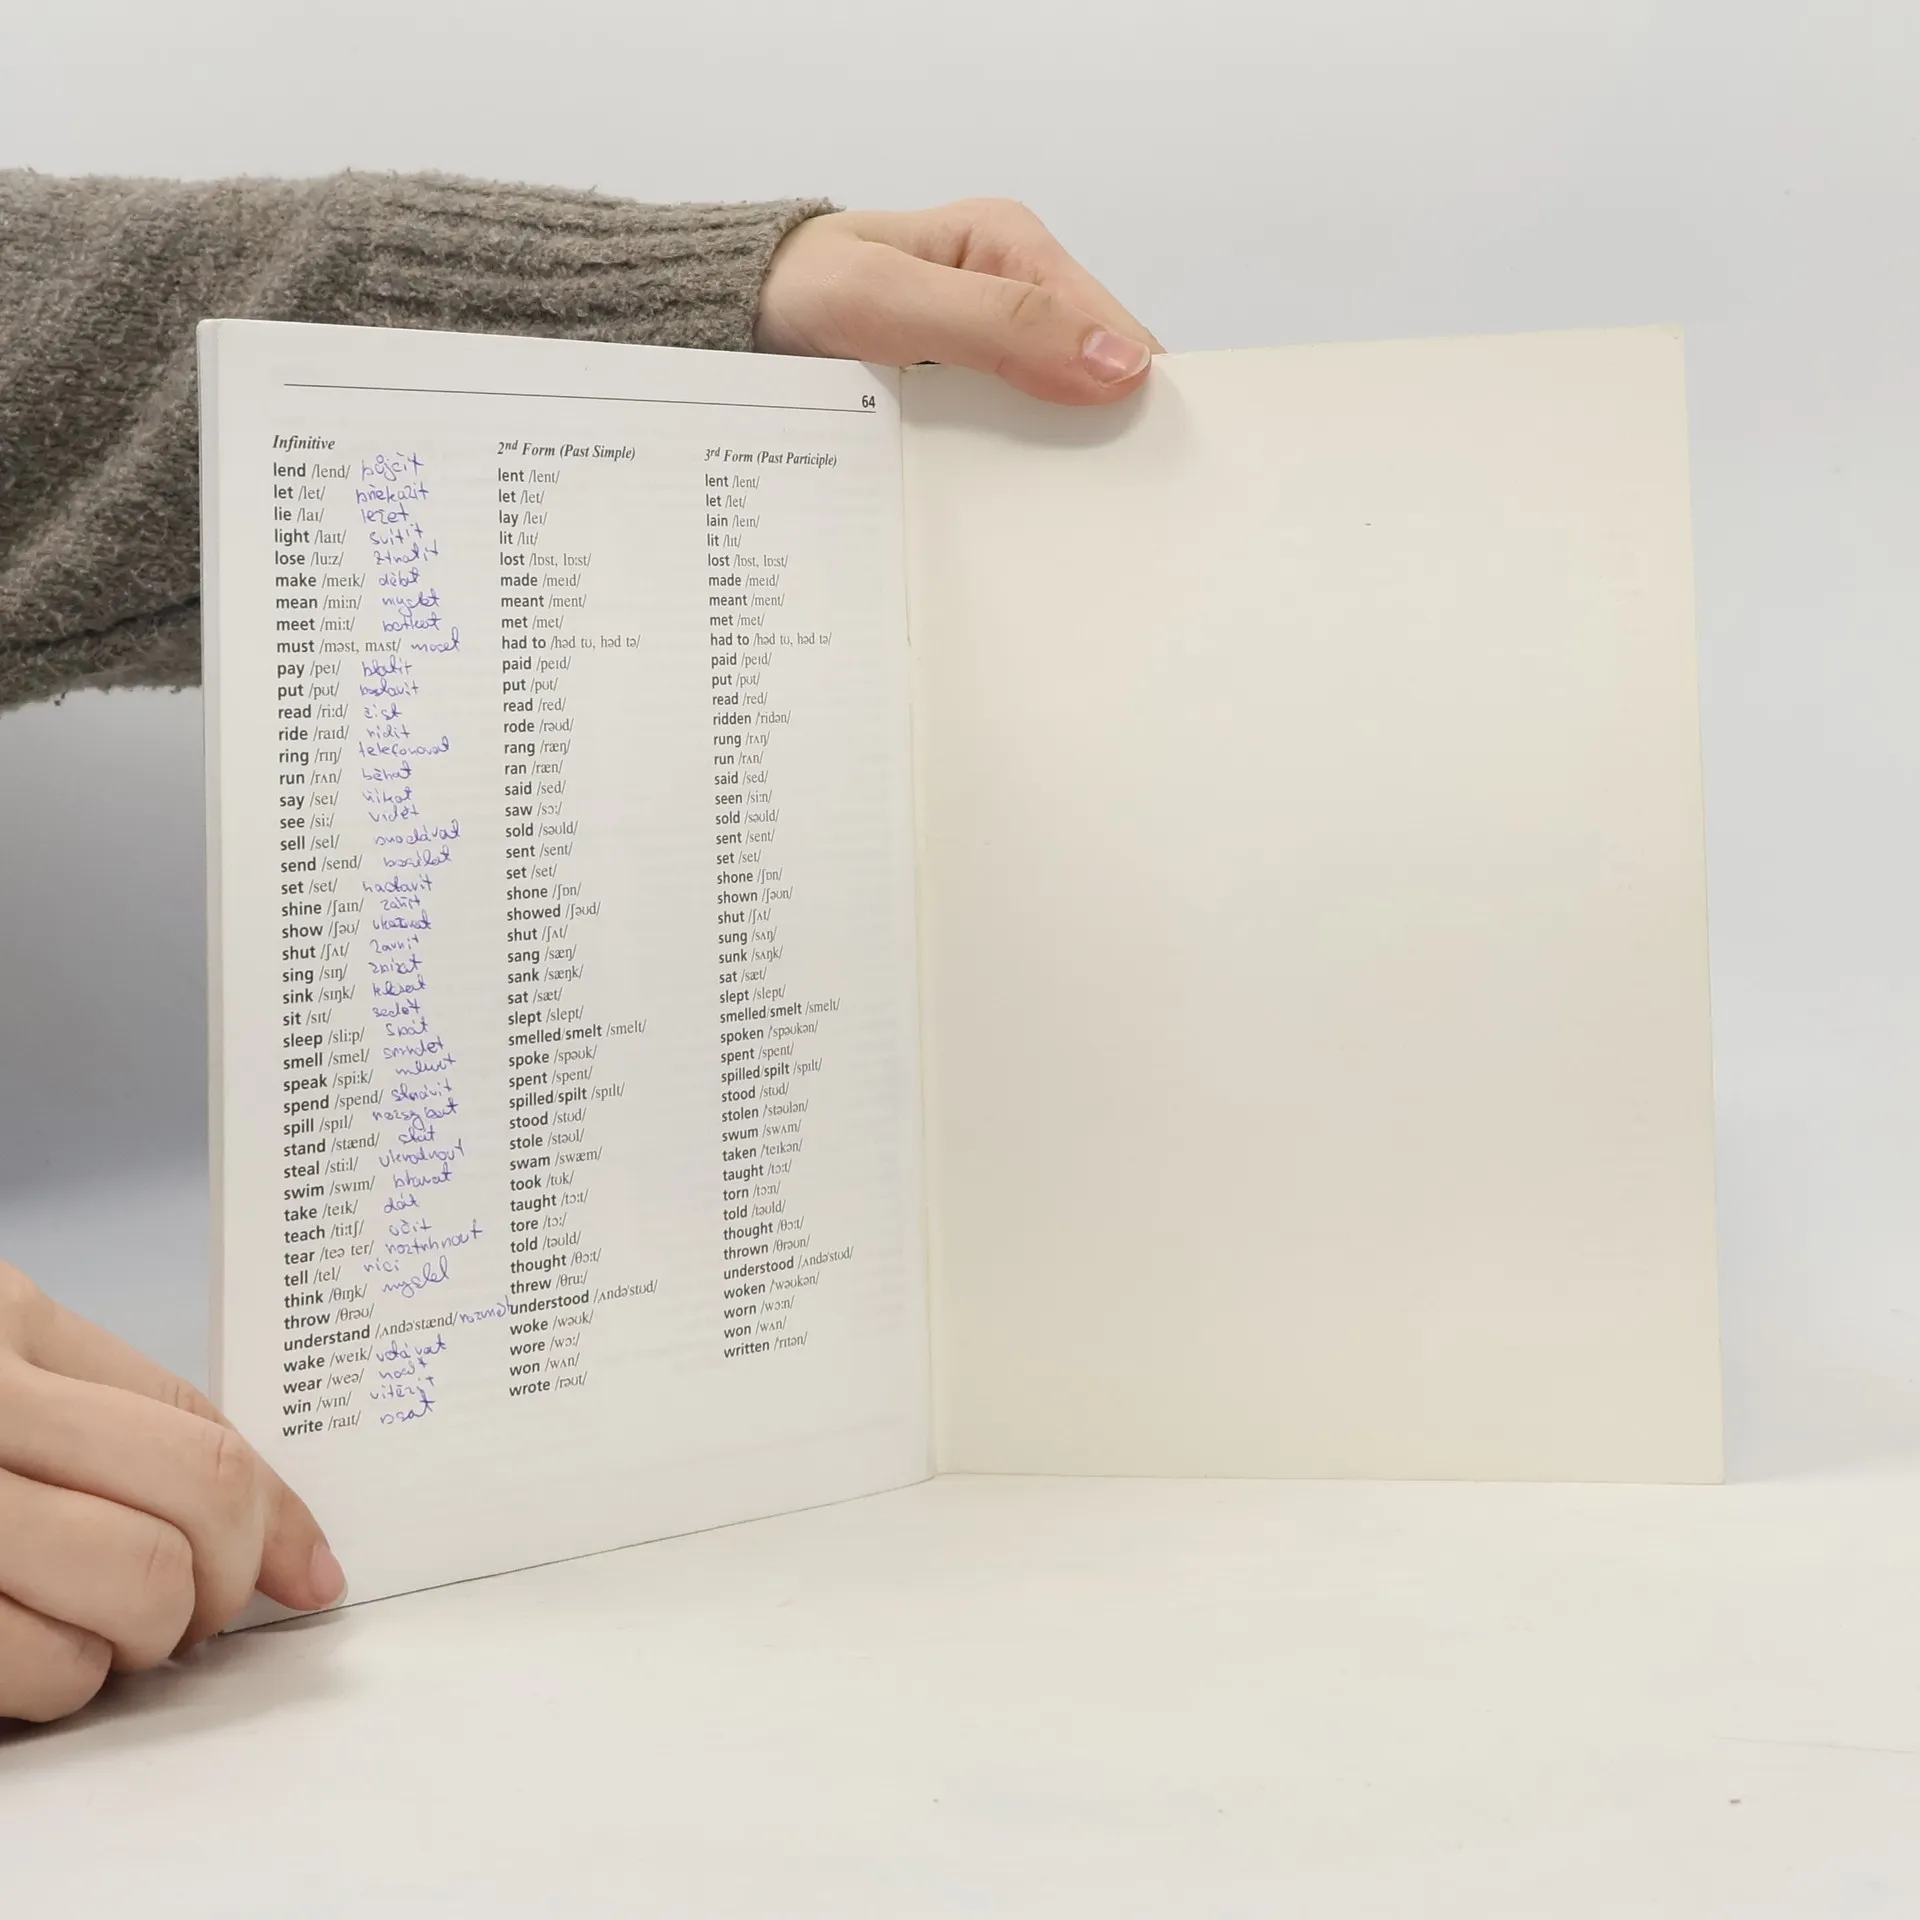 64
Infinitive 2nd Form (Past Simple) 3rd Form (Past Participle)
lend /lend/ půjčit lent /lent/ lent /lent/
let /let/ překazit let /let/ let /let/
lie /laɪ/ ležet lay /leɪ/ lain /leɪn/
light /laɪt/ svítit lit /lɪt/ lit /lɪt/
lose /luːz/ ztratit lost /lɒst, lɒːst/ lost /lɒst, lɒːst/
make /meɪk/ dělat made /meɪd/ made /meɪd/
mean /miːn/ myslet meant /ment/ meant /ment/
meet /miːt/ potkat met /met/ met /met/
must /məst, mʌst/ muset had to /həd tʊ, həd tə/ had to /həd tʊ, həd tə/
pay /peɪ/ platit paid /peɪd/ paid /peɪd/
put /pʊt/ postavit put /pʊt/ put /pʊt/
read /riːd/ číst read /red/ read /red/
ride /raɪd/ řídit rode /rəʊd/ ridden /ˈrɪdən/
ring /rɪŋ/ telefonovat rang /ræŋ/ rung /rʌŋ/
run /rʌn/ běhat ran /ræn/ run /rʌn/
say /seɪ/ říkat said /sed/ said /sed/
see /siː/ vidět saw /sɔː/ seen /siːn/
sell /sel/ prodávat sold /səʊld/ sold /səʊld/
send /send/ posílat sent /sent/ sent /sent/
set /set/ nastavit set /set/ set /set/
shine /ʃaɪn/ zářit shone /ʃɒn/ shone /ʃɒn/
show /ʃəʊ/ ukazovat showed /ʃəʊd/ shown /ʃəʊn/
shut /ʃʌt/ zavřít shut /ʃʌt/ shut /ʃʌt/
sing /sɪŋ/ zpívat sang /sæŋ/ sung /sʌŋ/
sink /sɪŋk/ klesat sank /sæŋk/ sunk /sʌŋk/
sit /sɪt/ sedět sat /sæt/ sat /sæt/
sleep /sliːp/ spát slept /slept/ slept /slept/
smell /smel/ smrdět smelled/smelt /smelt/ smelled/smelt /smelt/
speak /spiːk/ mluvit spoke /spəʊk/ spoken /ˈspəʊkən/
spend /spend/ strávit spent /spent/ spent /spent/
spill /spɪl/ rozsypat spilled/spilt /spɪlt/ spilled/spilt /spɪlt/
stand /stænd/ stát stood /stʊd/ stood /stʊd/
steal /stiːl/ ukradnout stole /stəʊl/ stolen /ˈstəʊlən/
swim /swɪm/ plavat swam /swæm/ swum /swʌm/
take /teɪk/ dát took /tʊk/ taken /ˈteɪkən/
teach /tiːtʃ/ učit taught /tɔːt/ taught /tɔːt/
tear /teə ter/ roztrhnout tore /tɔː/ torn /tɔːn/
tell /tel/ říci told /təʊld/ told /təʊld/
think /θɪŋk/ myslel thought /θɔːt/ thought /θɔːt/
throw /θrəʊ/ threw /θruː/ thrown /θrəʊn/
understand /ˌʌndəˈstænd/ rozumět understood /ˌʌndəˈstʊd/ understood /ˌʌndəˈstʊd/
wake /weɪk/ vstávat woke /wəʊk/ woken /ˈwəʊkən/
wear /weə/ nosit wore /wɔː/ worn /wɔːn/
win /wɪn/ vítězit won /wʌn/ won /wʌn/
write /raɪt/ psat wrote /rəʊt/ written /ˈrɪtən/